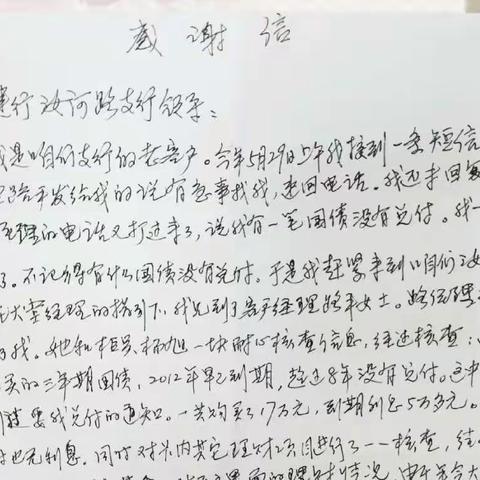 感谢信
建行汝河路支行领导：
我是咱们支行的老客户。今年5月29日上午我接到一条短信
路平发给我的说有急事找我，速回电话。我还未回复
经理的电话又打过来了，说我有一笔国债没有兑付。我一
了。不记得有什么国债没有兑付。于是我赶紧来到咱们汝
在大堂经理的指引下，我见到了客户经理路平女士。路经理
我。她和柜员杨旭一块耐心核查信息，经过核查：
买的三年期国债，2012年已到期，超过8年没有兑付。这中
到过要我兑付的通知。一共购买了17万元，到期利息5万多元。
也无利息。同时对卡内其它理财项目进行了一一核查，结
的理财情况，由于年令大